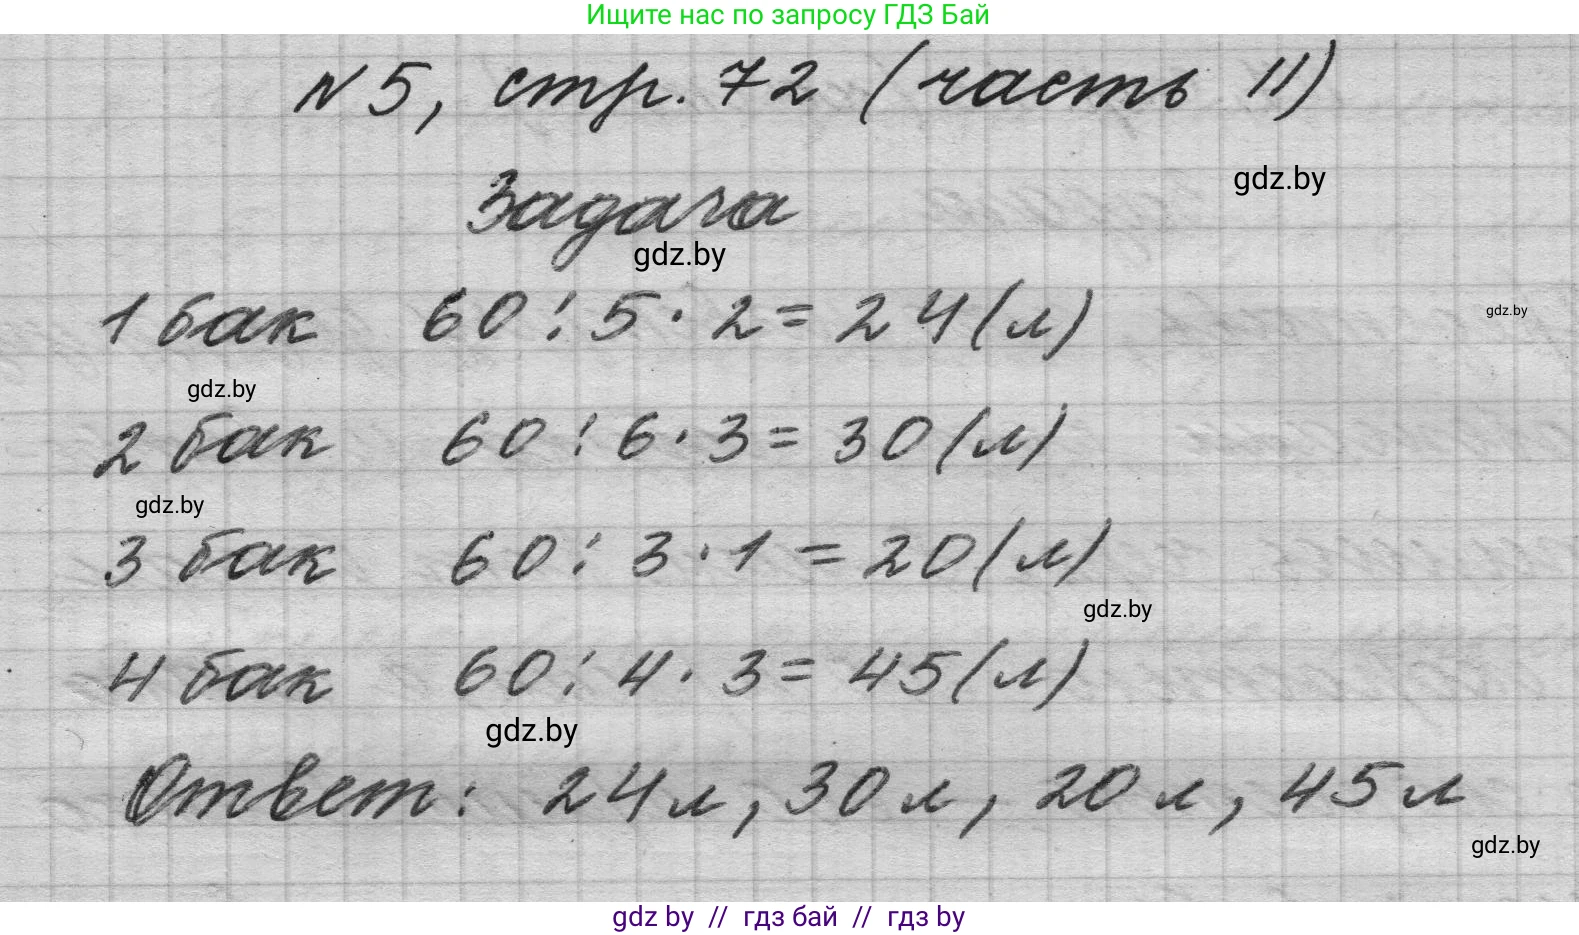 Ищите нас по запросу ГДЗ Бай
№5, стр. 72 (часть II)
gdz.by
Задача
gdz.by
1 бак 60 : 5 · 2 = 24 (л)
gdz.by
gdz.by
2 бак 60 : 6 · 3 = 30 (л)
gdz.by
3 бак 60 : 3 · 1 = 20 (л)
gdz.by
4 бак 60 : 4 · 3 = 45 (л)
gdz.by
Ответ: 24 л, 30 л, 20 л, 45 л
gdz.by
gdz by // гдз бай // гдз by